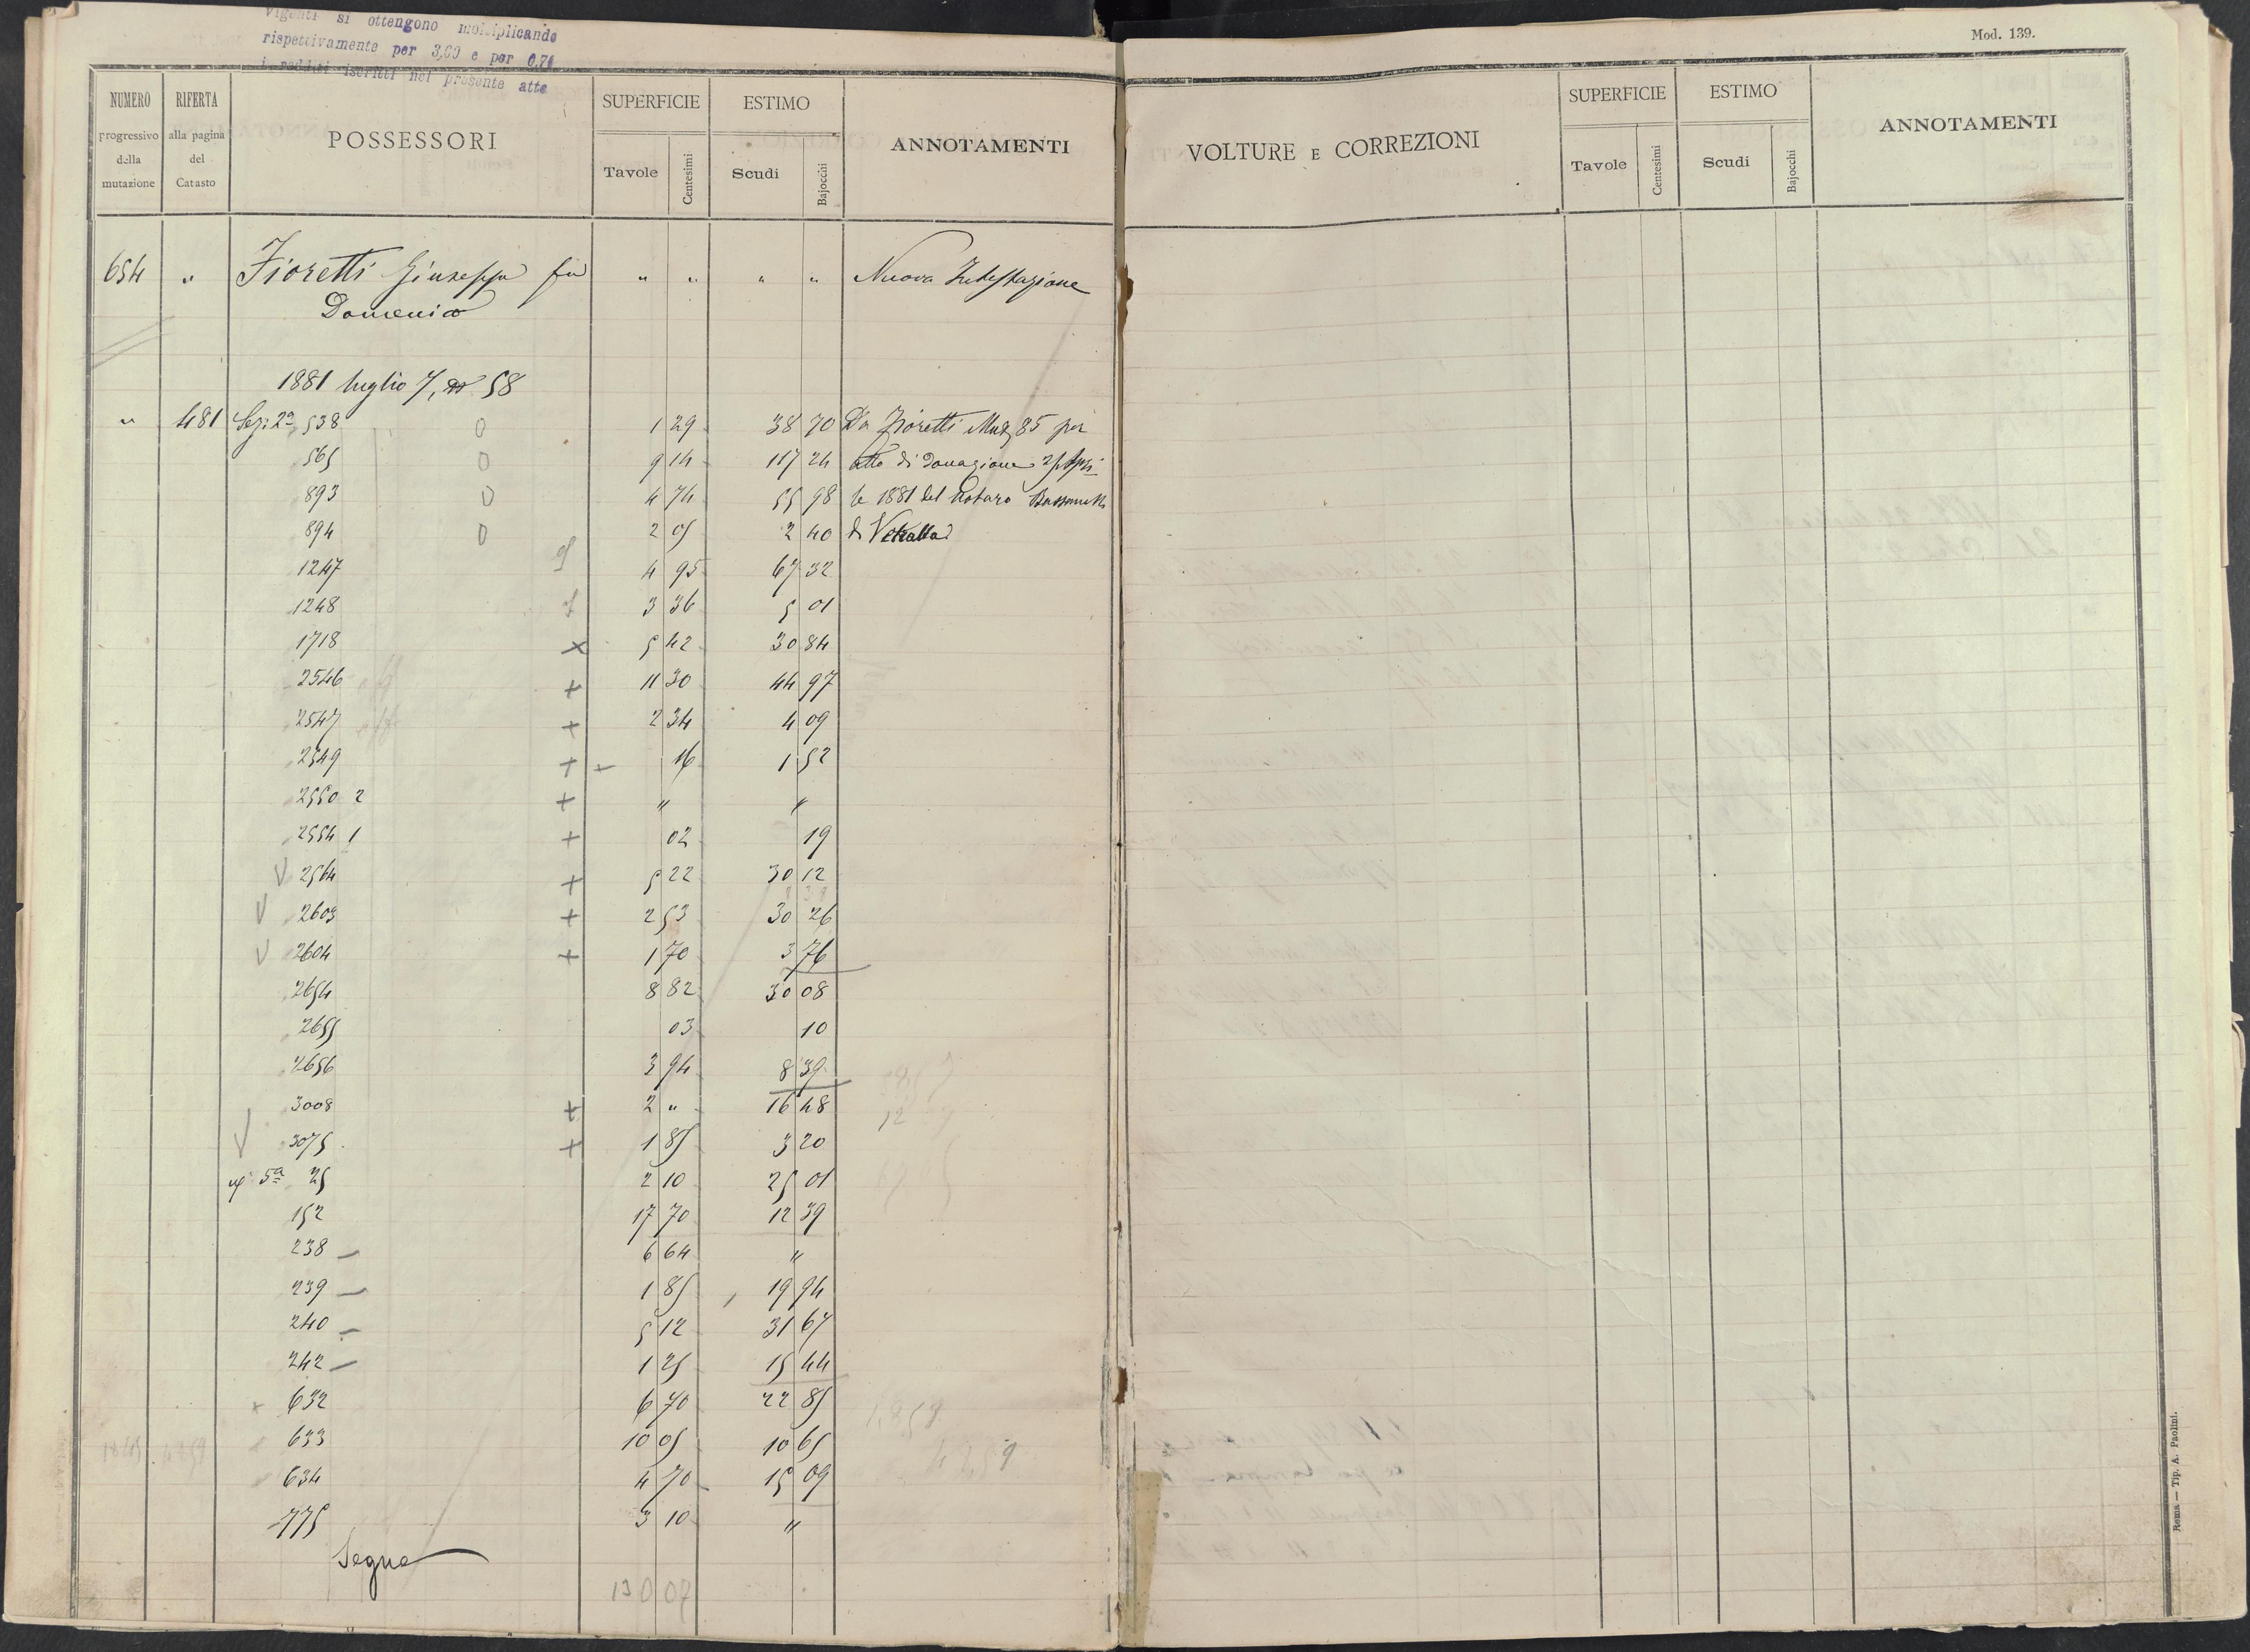 Vigenti si ottengono moltiplicando
rispettivamente per 3,60 e per 0,71
i redditi iscritti nel presente atto
Mod. 139.
NUMERO progressivo della mutazione
RIFERTA alla pagina del Catasto
POSSESSORI
SUPERFICIE Tavole Centesimi
ESTIMO Scudi Bajocchi
ANNOTAMENTI
VOLTURE E CORREZIONI
SUPERFICIE Tavole Centesimi
ESTIMO Scudi Bajocchi
ANNOTAMENTI
654 " Fioretti Giuseppe fu " " " " Nuova Intestazione
Domenico
1881 luglio 7, 58
" 481 Sez: 2ª 538 0 1 29 38 70 Da Fioretti 85 per
565 0 9 14 117 24 atto di donazione Apri
893 0 4 74 55 98 le 1881 del Notaro
894 0 2 05 2 40 di Vetralla
1247 4 95 67 32
1248 3 36 5 01
1718 x 5 42 30 84
2546 + 11 30 44 97
2547 + 2 34 4 09
2549 + 16 1 52
2550 2 + " "
2554 1 + 02 19
V 2564 + 5 22 30 12
V 2603 + 2 53 30 26
V 2604 + 1 70 3 76
2654 8 82 30 08
2655 03 10
2656 3 94 8 39
3008 + 2 " 16 48
V 3075 + 1 85 3 20
5ª 25 2 10 25 01
152 17 70 12 39
238 — 6 64 "
239 — 1 85 19 94
240 — 5 12 31 67
242 — 1 25 15 44
632 6 70 22 85
633 10 05 10 65
634 4 70 15 09
775 3 10 "
Segue
130 07
Roma — Tip. A. Paolini.